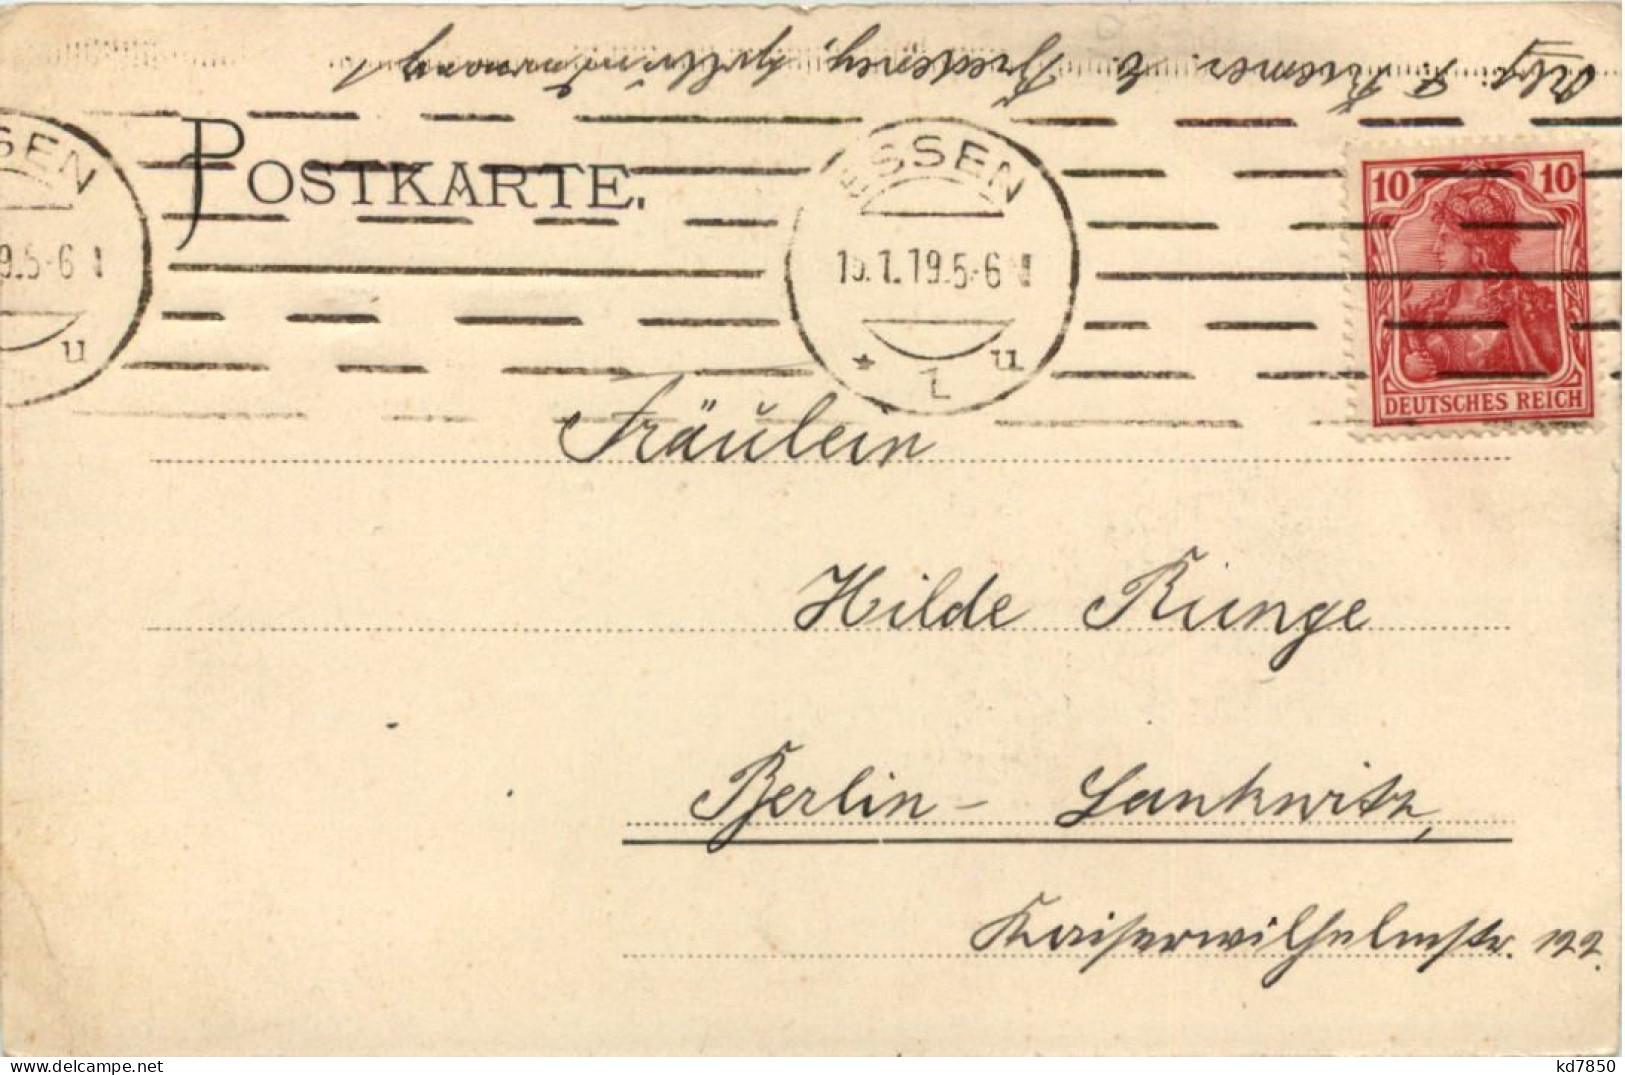 Abs. F. Kremer. b. Bredeney,
POSTKARTE.
SSEN
9.5-6
u
ESSEN
15.1.19.5-6
* 1 u
10 10
DEUTSCHES REICH
Fräulein
Hilde Runge
Berlin - Lankwitz,
Kaiserwilhelmstr. 122.
kd7850